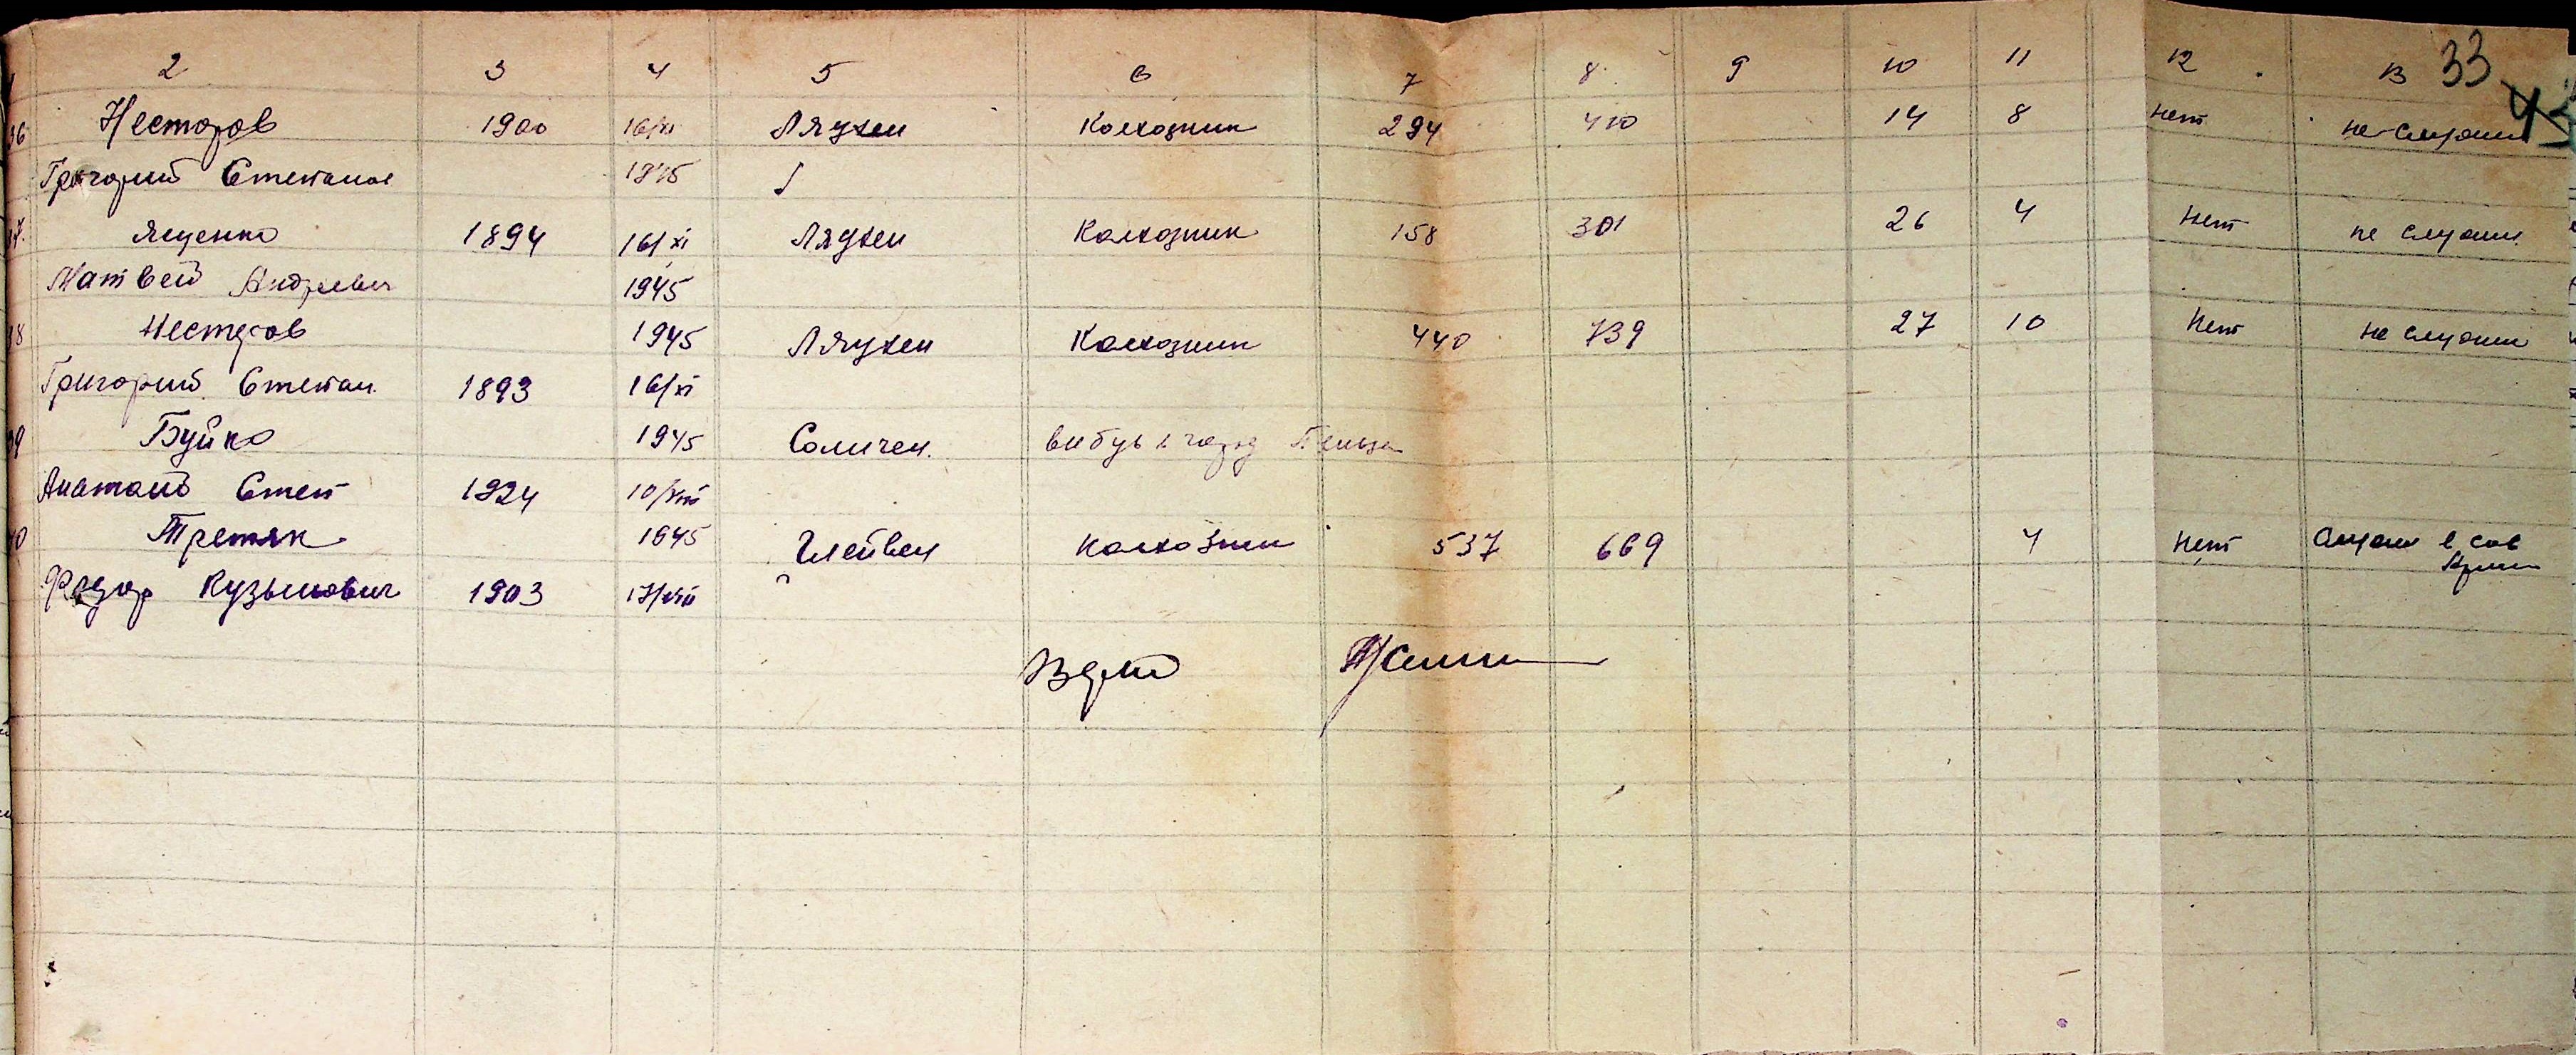 2 3 4 5 6 7 8 9 10 11 12 13 33
36 Несторов 1900 16/XI Ляухен Колхозник 294 410 14 8 нет не служил 43
Григорий Степанов 1945
37. Ященко 1894 16/XI Ляухен Колхозник 158 301 26 4 нет не служил
Матвей Андреевич 1945
38 Нестеров 1945 Ляухен Колхозник 440 739 27 10 Нет не служил
Григорий Степан. 1893 16/XI
39 Буйко 1945 Соличен. вибув в город
Анатолий Степ 1924 10/VIII
40 Третяк 1945 колхозник 537 669 4 Нет Служил в сов
Федор Кузьмович 1903 17/VIII